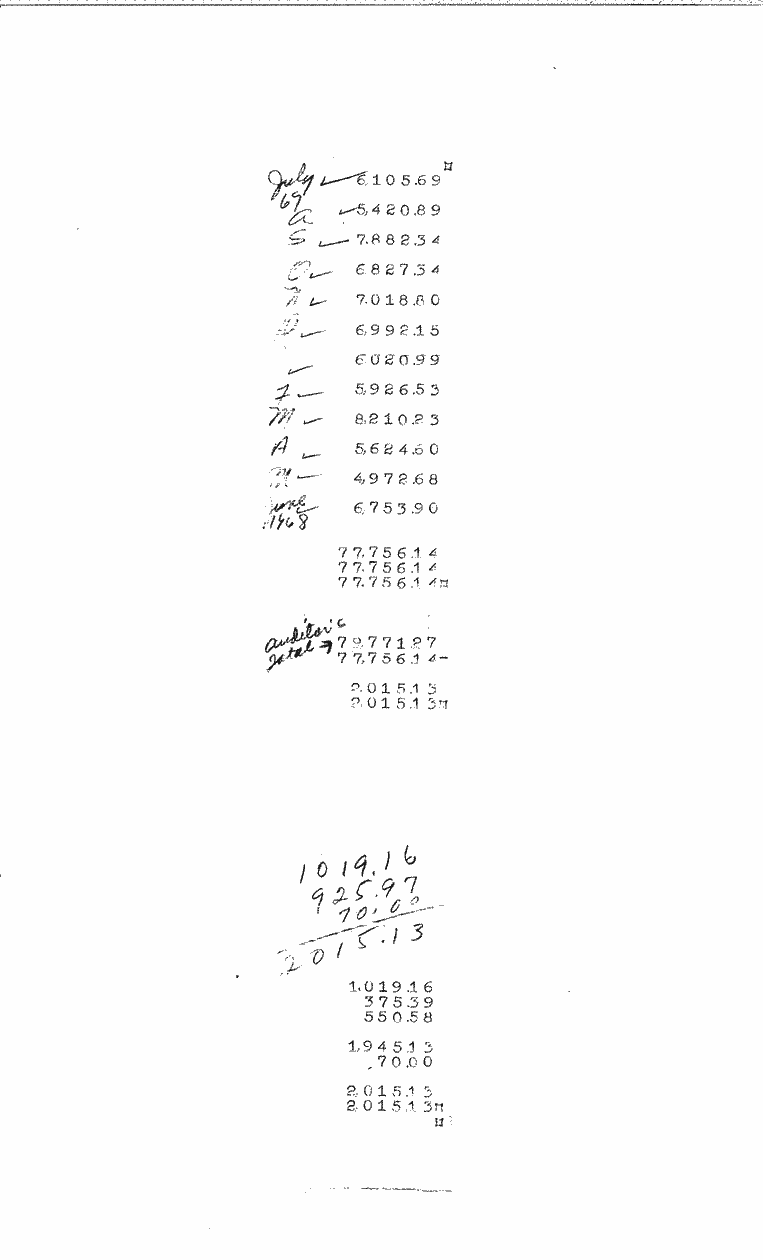 July ✓ 6,105.69 ¤
69
a ✓ 5,420.89
S ✓ 7,882.34
O ✓ 6,827.34
N ✓ 7,018.80
D ✓ 6,992.15
✓ 6,020.99
F ✓ 5,926.53
M ✓ 8,210.23
A ✓ 5,624.60
M ✓ 4,972.68
June 6,753.90
1968
77,756.14
77,756.14
77,756.14¤
auditor's
total → 79,771.27
77,756.14-
2,015.13
2,015.13¤
1019.16
925.97
70.00
2015.13
1,019.16
375.39
550.58
1,945.13
70.00
2,015.13
2,015.13¤
¤